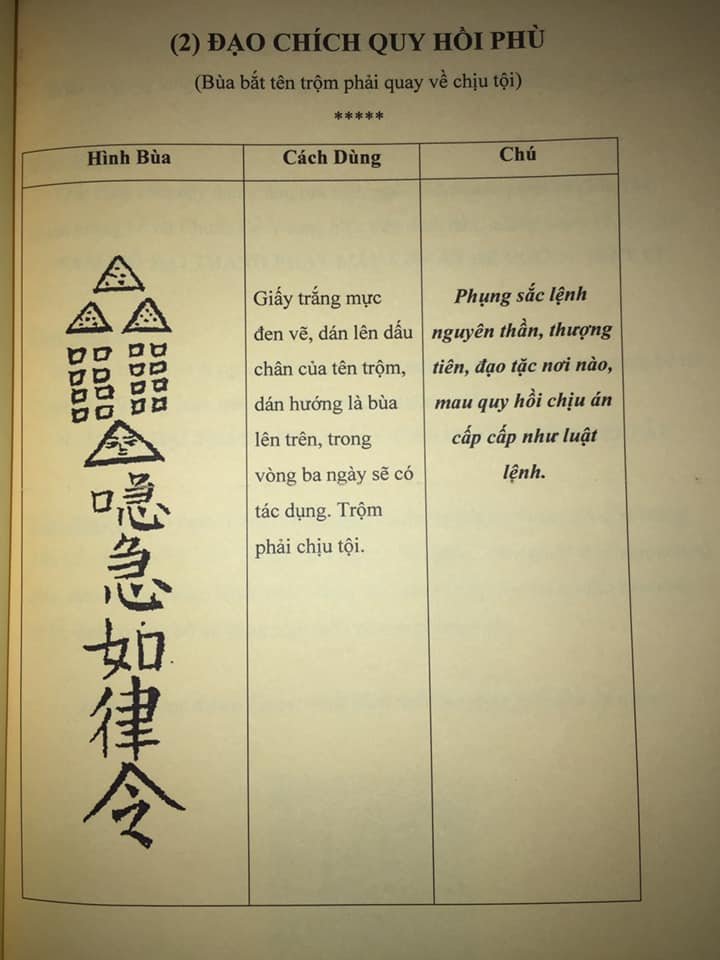 (2) ĐẠO CHÍCH QUY HỒI PHÙ
(Bùa bắt tên trộm phải quay về chịu tội)
*****
Hình Bùa
Cách Dùng
Chú
急
如
律
令
Giấy trắng mực
đen vẽ, dán lên dấu
chân của tên trộm,
dán hướng lá bùa
lên trên, trong
vòng ba ngày sẽ có
tác dụng. Trộm
phải chịu tội.
Phụng sắc lệnh
nguyên thần, thượng
tiên, đạo tặc nơi nào,
mau quy hồi chịu án
cấp cấp như luật
lệnh.